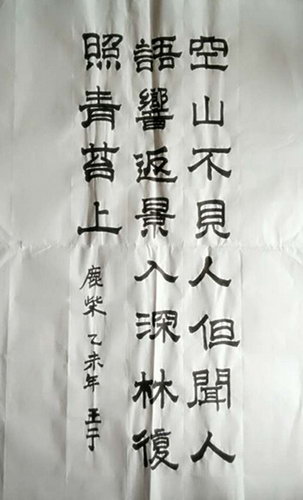 空山不見人但聞人
語響返景入深林復
照青苔上
鹿柴 乙未年 王于